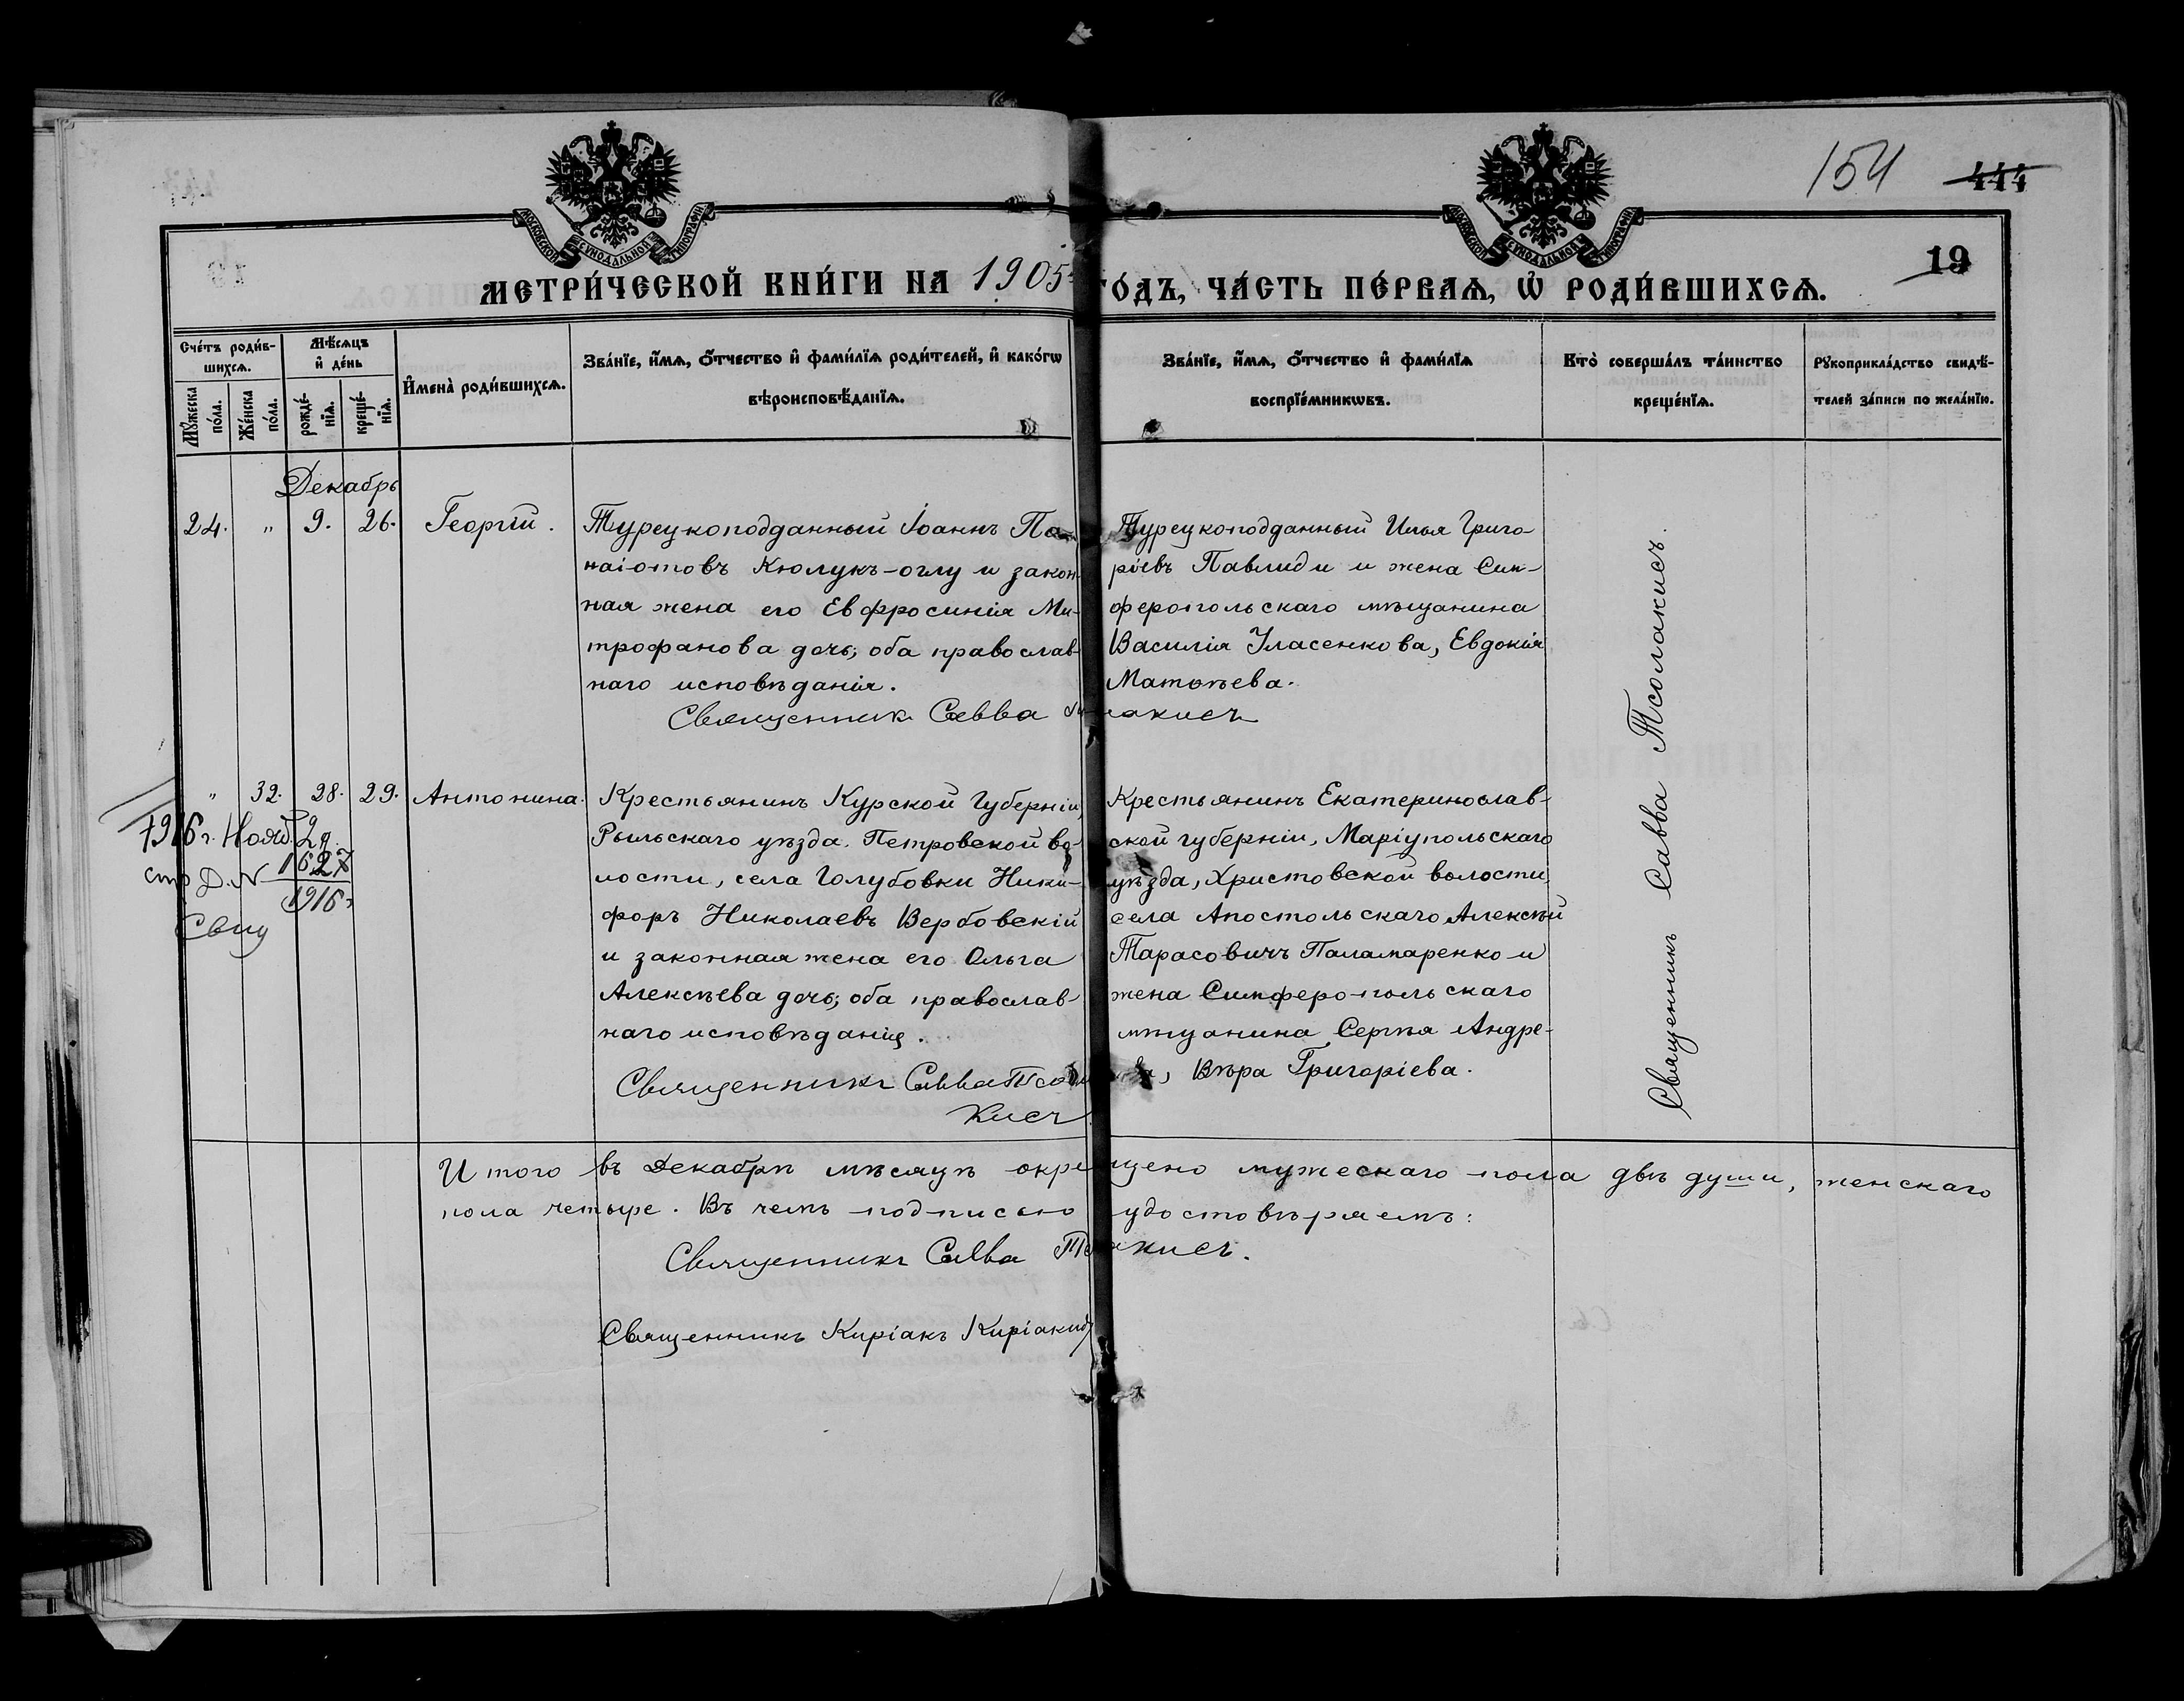 154 444
МОСКОВСКОЙ СѴНОДАЛЬНОЙ ТИПОГРАФІИ
МОСКОВСКОЙ СѴНОДАЛЬНОЙ ТИПОГРАФІИ
19
МЕТРИ́ЧЕСКОЙ КНИ́ГИ НА 1905 ГО́ДЪ, ЧА́СТЬ ПЕ́РВАѦ, Ѡ҆ РОДИ́ВШИХСѦ.
Сче́тъ роди́в-
шихсѧ.
Мꙋ́жеска по́ла.
Же́нска по́ла.
Мѣ́сѧцъ и҆ де́нь
рожде́-нїѧ.
креще́-нїѧ.
И҆мена̀ роди́вшихсѧ.
Зва́нїе, и҆́мѧ, ѻ҆́тчество и҆ фами́лїѧ роди́телей, и҆ како́гѡ
вѣроисповѣ́данїѧ.
Зва́нїе, и҆́мѧ, ѻ҆́тчество и҆ фами́лїѧ
воспрїе́мникѡвъ.
Кто̀ соверша́лъ та́инство
креще́нїѧ.
Рꙋкоприкла́дство свидѣ́-
телей за́писи по жела́нїю.
Декабрь
24. " 9. 26. Георгій.
Турецкоподданный Іоаннъ Па-
наіотовъ Кюлукъ-оглу и закон-
ная жена его Евфросинія Ми-
трофанова дочь; оба православ-
наго исповѣданія.
Турецкоподданный Илья Григо-
ріевъ Павлиди и жена Сим-
феропольскаго мѣщанина
Василія Уласенкова, Евдокія
Матвѣева.
Священник Савва акисъ
" 32. 28. 29. Антонина.
1916 г. Нояб. 29
Д. № 1627
1916 г
Свид
Крестьянинъ Курской Губерніи,
Рыльскаго уѣзда. Петровской во-
лости, села Голубовки Ники-
форъ Николаевъ Вербовскій
и законная жена его Ольга
Алексѣева дочь; оба православ-
наго исповѣданія.
Священникъ Савва Тсола
кисъ
Крестьянинъ Екатеринослав-
ской губерніи, Маріупольскаго
уѣзда, Христовской волости,
села Апостольскаго Алексѣй
Тарасовичъ Паламаренко и
жена Симферопольскаго
мѣщанина Сергѣя Андре-
ва, Вѣра Григоріева.
Священникъ Савва Тсолакисъ.
Итого въ Декабрѣ мѣсяцѣ окрещено мужескаго пола двѣ души, женскаго
пола четыре. Въ чемъ подписью удостовѣряемъ:
Священникъ Савва Тс акисъ.
Священникъ Киріакъ Киріакид